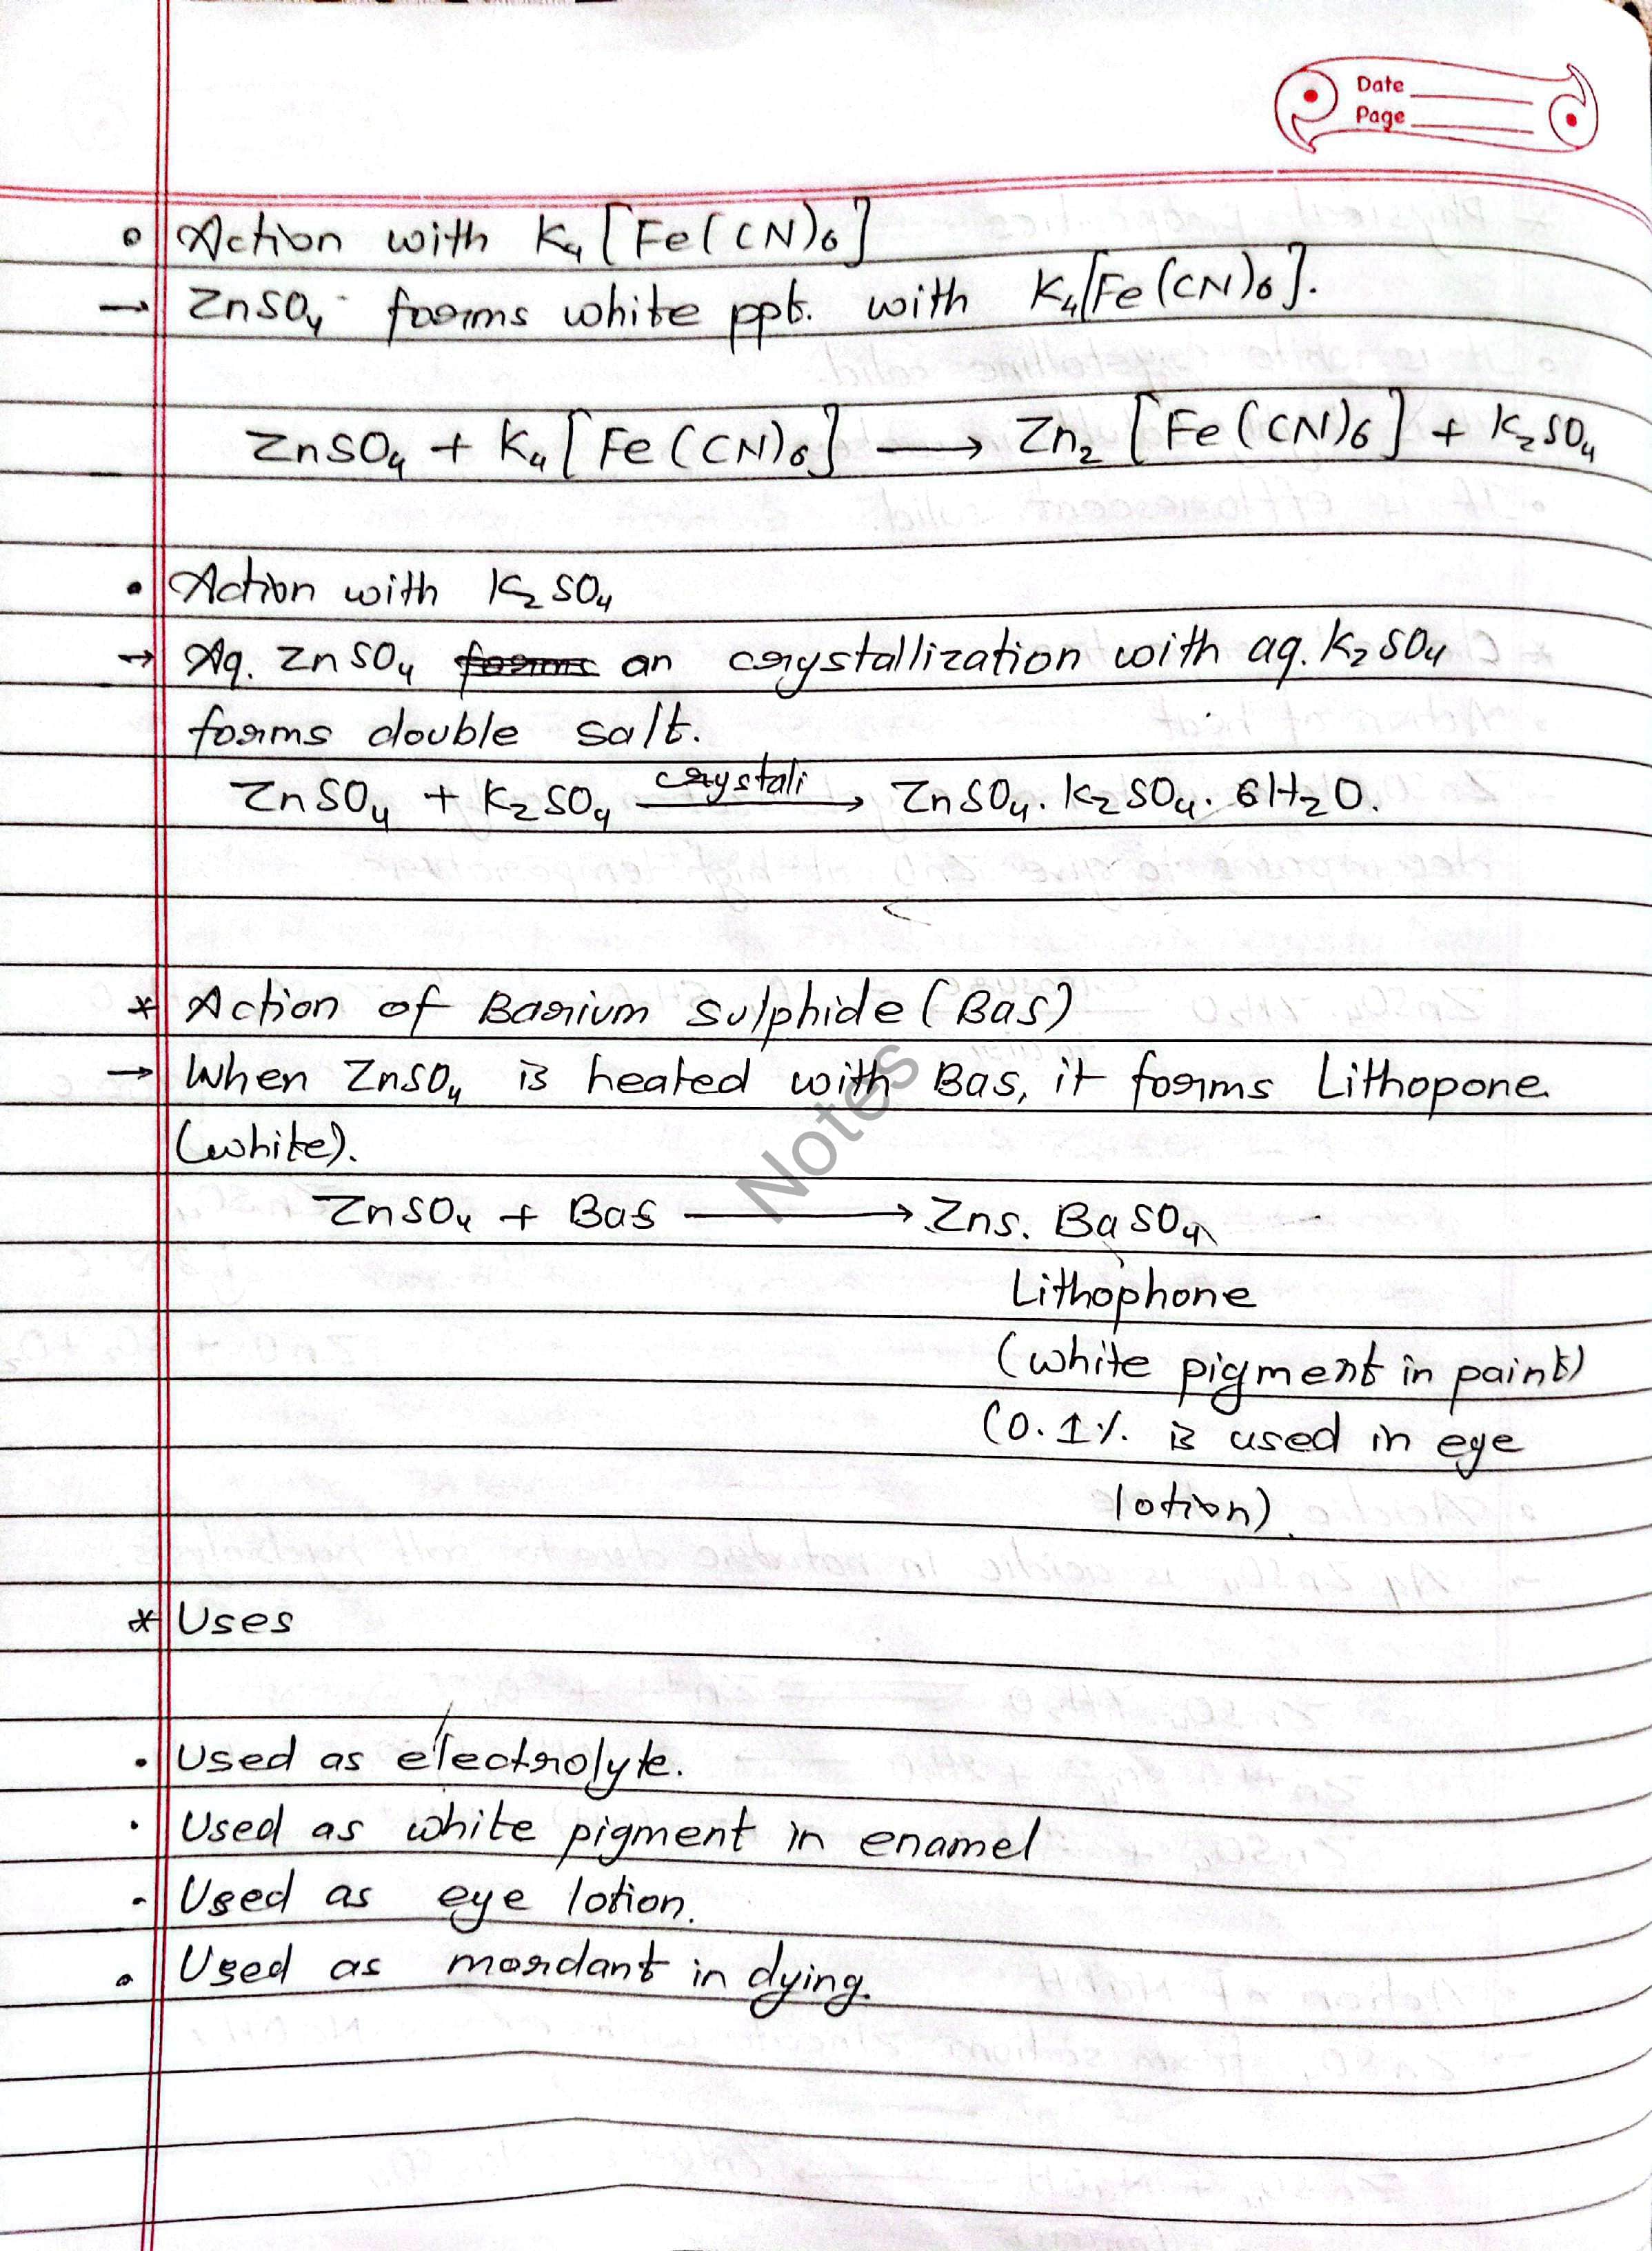 Date
Page
• Action with K₄[Fe(CN)₆]
→ ZnSO₄ forms white ppt. with K₄[Fe(CN)₆].
ZnSO₄ + K₄[Fe(CN)₆] ⟶ Zn₂[Fe(CN)₆] + K₂SO₄
• Action with K₂SO₄
→ Aq. ZnSO₄ forms on crystallization with aq. K₂SO₄
forms double salt.
crystali
ZnSO₄ + K₂SO₄ ⟶ ZnSO₄. K₂SO₄. 6H₂O.
* Action of Barium sulphide (Bas)
→ When ZnSO₄ is heated with Bas, it forms Lithopone
(white).
ZnSO₄ + Bas ⟶ Zns. BaSO₄
Notes
Lithophone
(white pigment in paint)
(0.1% is used in eye
lotion).
* Uses
• Used as electrolyte.
• Used as white pigment in enamel
• Used as eye lotion.
• Used as mordant in dying.